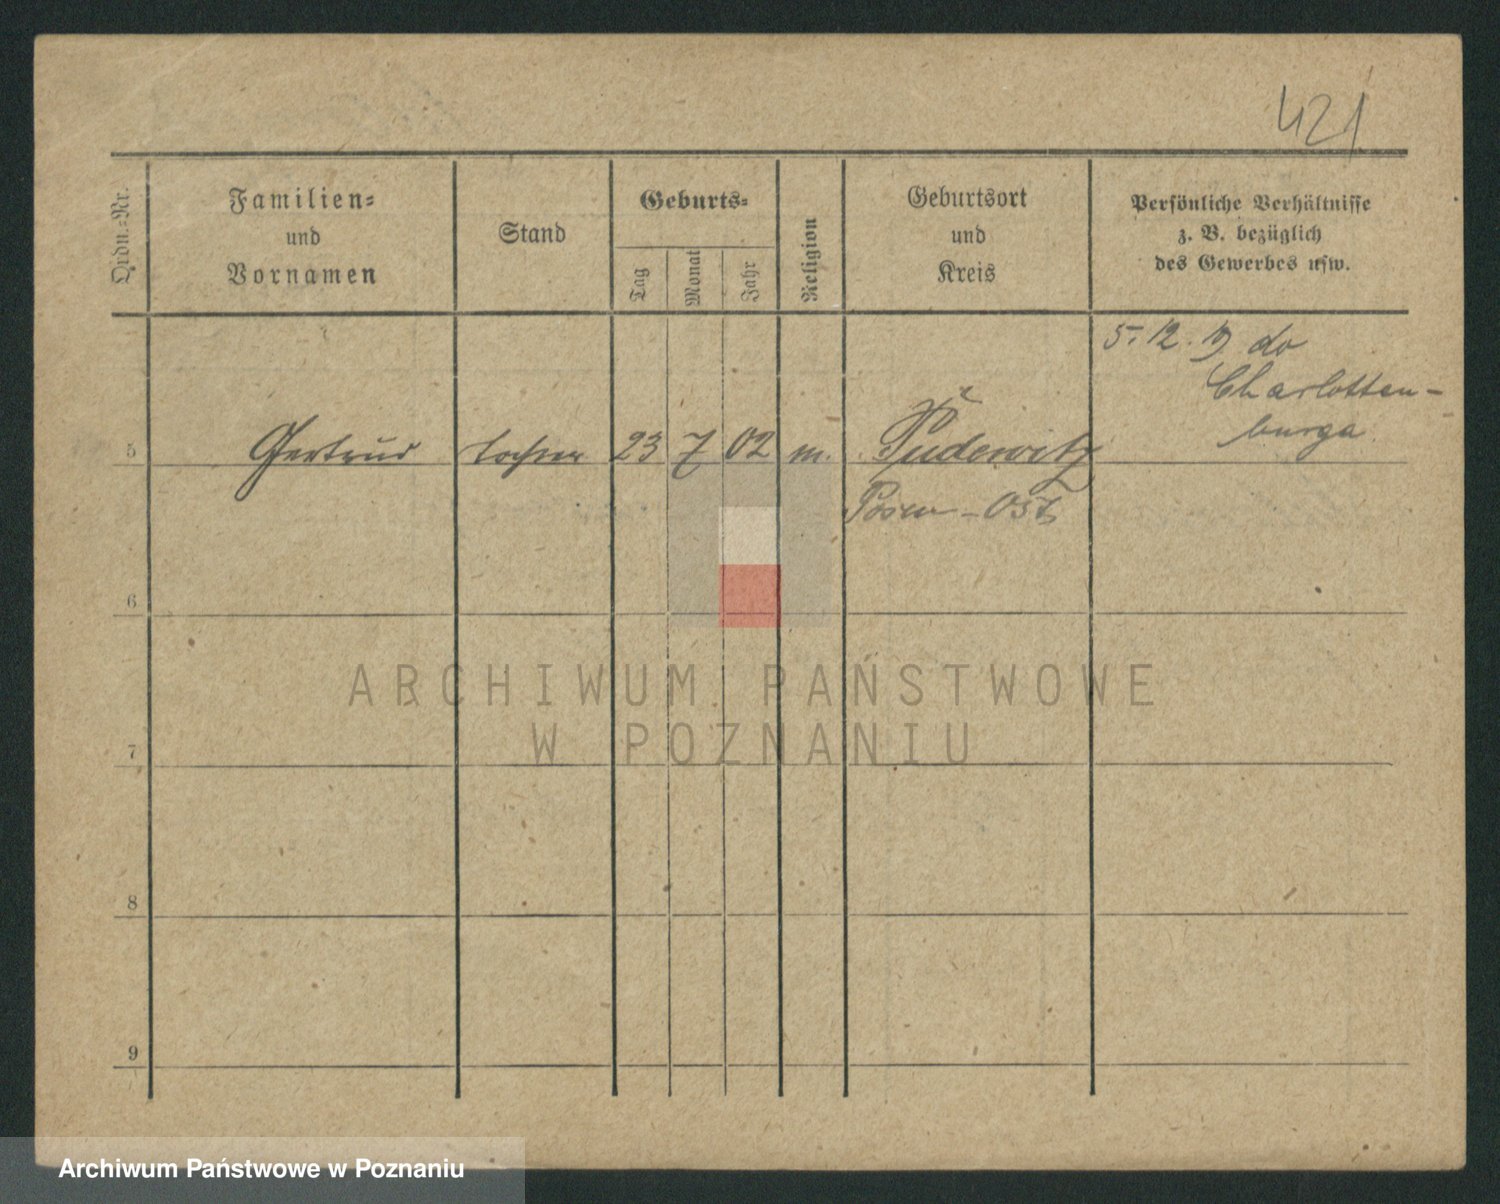 421
Ordn.-Nr.
Familien-
und
Vornamen
Stand
Geburts-
Tag
Monat
Jahr
Religion
Geburtsort
und
Kreis
Persönliche Verhältnisse
z. B. bezüglich
des Gewerbes usw.
5. 12. 19 do
Charlotten-
burga
5 Gertrud Tochter 23 7 02 m. Pudewitz
Posen-Ost
6
7
8
9
ARCHIWUM PAŃSTWOWE
W POZNANIU
Archiwum Państwowe w Poznaniu